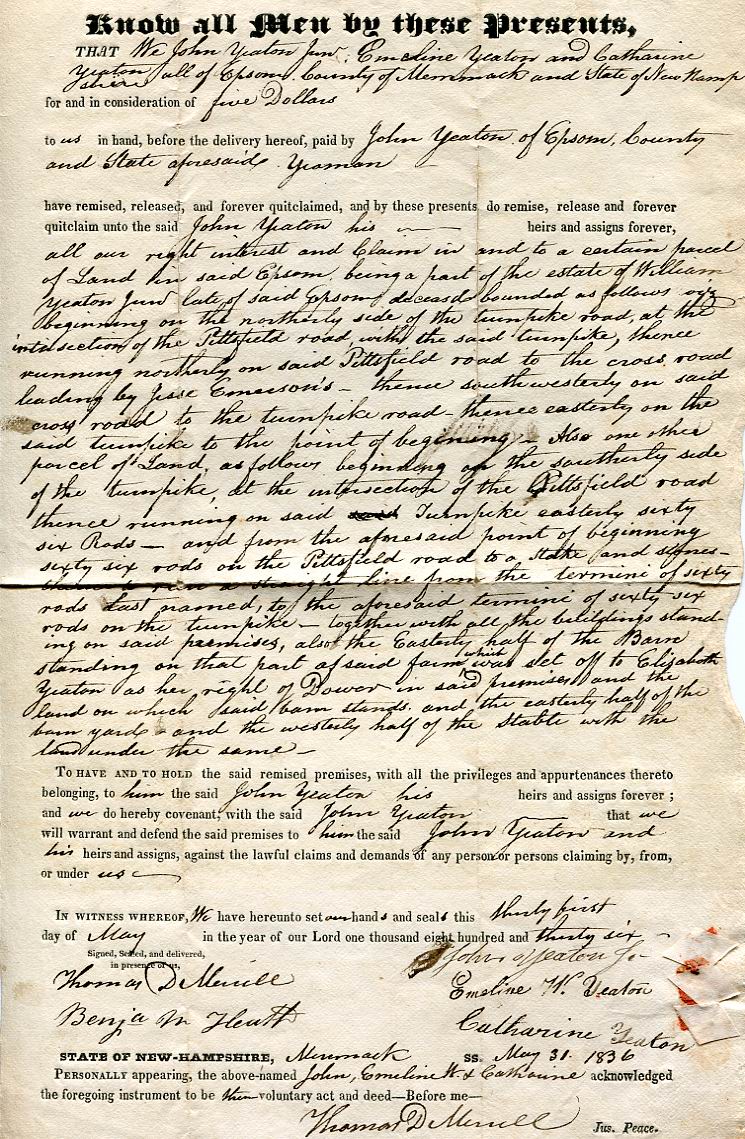 Know all Men by these Presents,
THAT We John Yeaton Junr, Emeline Yeaton and Catharine
Yeaton all of Epsom County of Merrimack and State of New Hamp
shire
for and in consideration of five Dollars
to us in hand, before the delivery hereof, paid by John Yeaton of Epsom, County
and State aforesaid Yeoman
have remised, released, and forever quitclaimed, and by these presents do remise, release and forever
quitclaim unto the said John Yeaton his heirs and assigns forever,
all our right interest and Claim in and to a certain parcel
of Land in said Epsom being a part of the estate of William
Yeaton Junr late of said Epsom deceased bounded as follows viz
beginning on the northerly side of the turnpike road, at the
intersection of the Pittsfield road, with the said turnpike, thence
running northerly on said Pittsfield road to the cross road
leading by Jesse Emerson's - thence southwesterly on said
cross road to the turnpike road - thence easterly on the
said turnpike to the point of begining - Also one other
parcel of Land, as follows beginning on the southerly side
of the turnpike, at the intersection of the Pittsfield road
thence running on said Turnpike easterly sixty
six Rods - and from the aforesaid point of beginning
sixty six rods on the Pittsfield road to a stake and stones -
thence to run a straight line from the termini of sixty
rods last named, to the aforesaid termini of sixty six
rods on the turnpike - together with all the buildings stand-
ing on said premises, also the Easterly half of the Barn
standing on that part of said farm which was set off to Elizabeth
Yeaton as her right of Dower in said premises and the
land on which said barn stands and the easterly half of the
barn yard and the westerly half of the stable with the
land under the same -
TO HAVE AND TO HOLD the said remised premises, with all the privileges and appurtenances thereto
belonging, to him the said John Yeaton his heirs and assigns forever ;
and we do hereby covenant, with the said John Yeaton that we
will warrant and defend the said premises to him the said John Yeaton and
his heirs and assigns, against the lawful claims and demands of any person or persons claiming by, from,
or under us
IN WITNESS WHEREOF, We have hereunto set our hands and seals this thirty first
day of May in the year of our Lord one thousand eight hundred and thirty six -
Signed, Sealed, and delivered,
in presence of us,
John Yeaton Jr
Thomas D Merrill
Emeline W. Yeaton
Benja M Heath
Catharine Yeaton
STATE OF NEW-HAMPSHIRE, Merrimack SS. May 31. 1836
PERSONALLY appearing, the above-named John, Emeline W. & Catharine acknowledged
the foregoing instrument to be their voluntary act and deed—Before me—
Thomas D Merrill Jus. Peace.